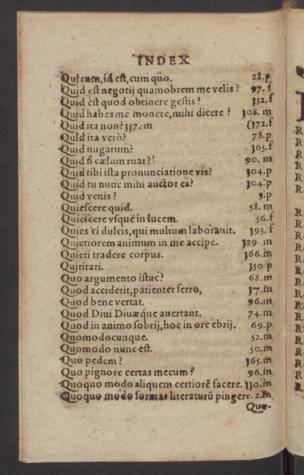 INDEX
Qui cum, id est, cum quo. 28.p
Quid est negotij quamobrem me velis? 97.f
Quid est quod obtinere gestis? 132.f
Quid habes me monere, mihi dicere? 108.m
Quid ita non? 137.m (172.f
Quid ita verò? 78.p
Quid nugarum? 165.f
Quid si cælum ruat? 90.m
Quid tibi ista pronunciatione vis? 104.p
Quid tu nunc mihi auctor es? 104.p
Quid venis? 3.p
Quiescere quid. 58.m
Quiescere vsque in lucem. 56.f
Quies ei dulcis, qui multum laborauit. 193.f
Quietiorem animum in me accipe. 129.m
Quieti tradere corpus. 166.m
Quiritari. 150.p
Quo argumento istuc? 68.m
Quod acciderit, patienter ferro, 17.m
Quod bene vertat. 96.m
Quod Diui Diuæque auertant. 74.m
Quod in animo sobrij, hoc in ore ebrij. 69.p
Quomodocunque. 52.m
Quomodo nunc est. 50.m
Quo pedem? 165.m
Quo pignore certas mecum? 96.m
Quoquo modo aliquem certiorē facere. 110.m
Quoque modo formas literaturū pingere. 2.m
Quo-